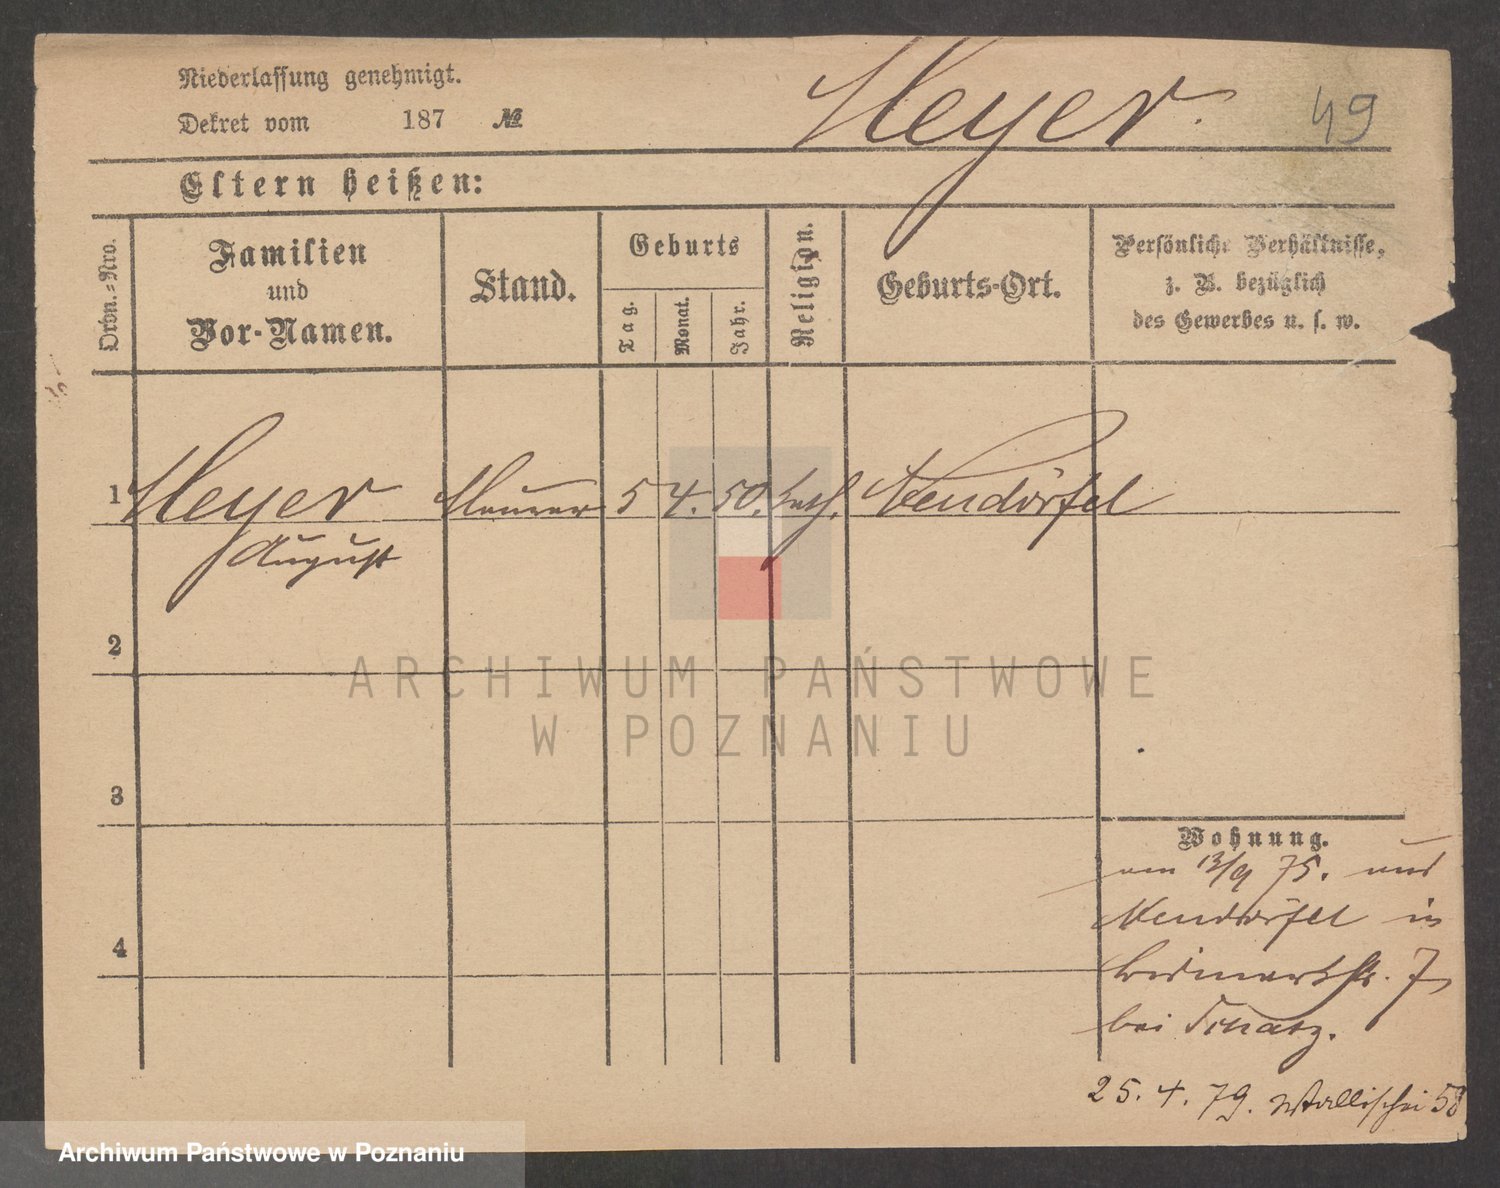 Niederlassung genehmigt.
Dekret vom 187 №
Meyer.
49
Eltern heißen:
Ordn.-Nro.
Familien
und
Vor-Namen.
Stand.
Geburts
Tag.
Monat.
Jahr.
Religion.
Geburts-Ort.
Persönliche Verhältnisse,
z. B. bezüglich
des Gewerbes u. s. w.
1 Meyer Maurer 5 4. 50. luth. Neudörfel
August
2
3
4
Wohnung.
am 13/9 75. aus
Neudörfel in
Bismarkstr. 7
bei
25. 4. 79. Wallischei 58
ARCHIWUM PAŃSTWOWE
W POZNANIU
Archiwum Państwowe w Poznaniu